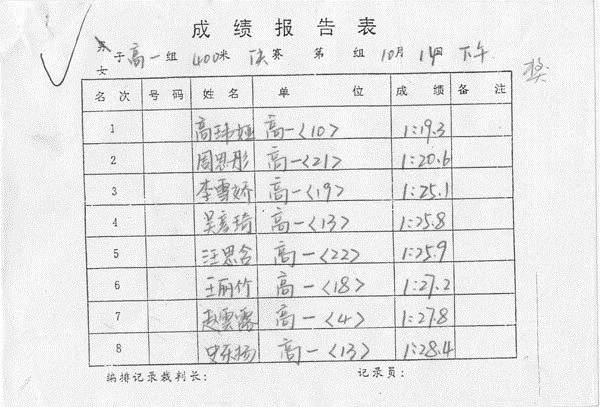 成绩报告表
男
女 子 高一 组 400米 决 赛 第 组 10月 14日 下午
奖
名次 号码 姓名 单位 成绩 备注
1 高玮娅 高一<10> 1:19.3
2 周思彤 高一<21> 1:20.6
3 李雪娇 高一<19> 1:25.1
4 吴彦琦 高一<13> 1:25.8
5 汪思含 高一<22> 1:25.9
6 王丽竹 高一<18> 1:27.2
7 赵雲露 高一<4> 1:27.8
8 史乐扬 高一<13> 1:28.4
编排记录裁判长: 记录员: